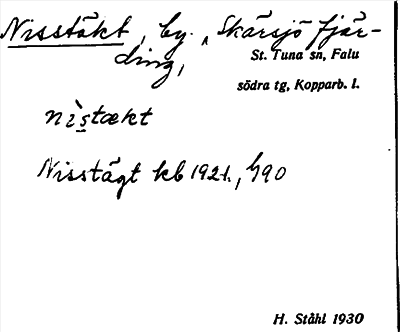 Nisstäkt, by. Skärsjö fjär-
ding,
St. Tuna sn, Falu
södra tg, Kopparb. l.
nìstækt
Nisstägt kb 1921, 
H. Ståhl 1930